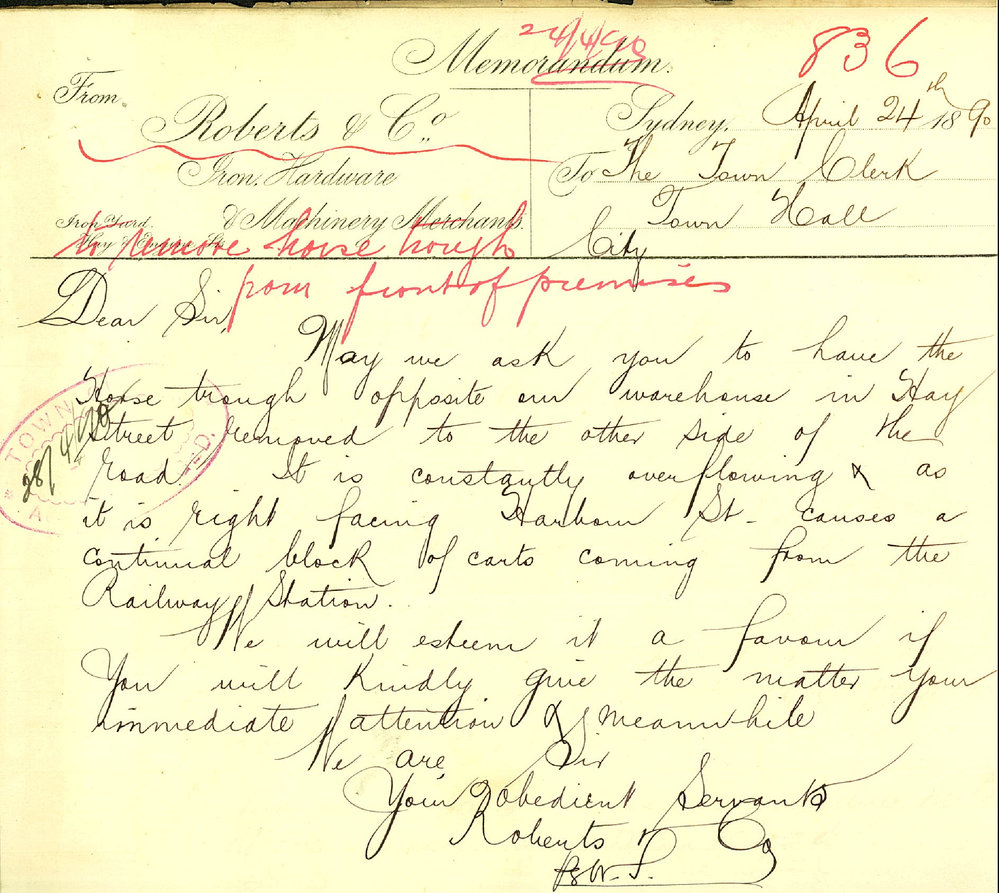 24/4/90
836
Memorandum.
From
Roberts & Co.
Iron, Hardware
& Machinery Merchants.
Iron Yard
Hay
Sydney, April 24th 1890
To The Town Clerk
Town Hall
City
to remove horse trough
from front of premises
Dear Sir,
May we ask you to have the
Horse trough opposite our warehouse in Hay
Street removed to the other side of the
road. It is constantly overflowing & as
it is right facing Harbour St. causes a
continual block of carts coming from the
Railway Station.
We will esteem it a favour if
You will kindly give the matter your
immediate attention & meanwhile
We are Sir
Your Obedient Servants
Roberts & Co
TOWN
28/4/90